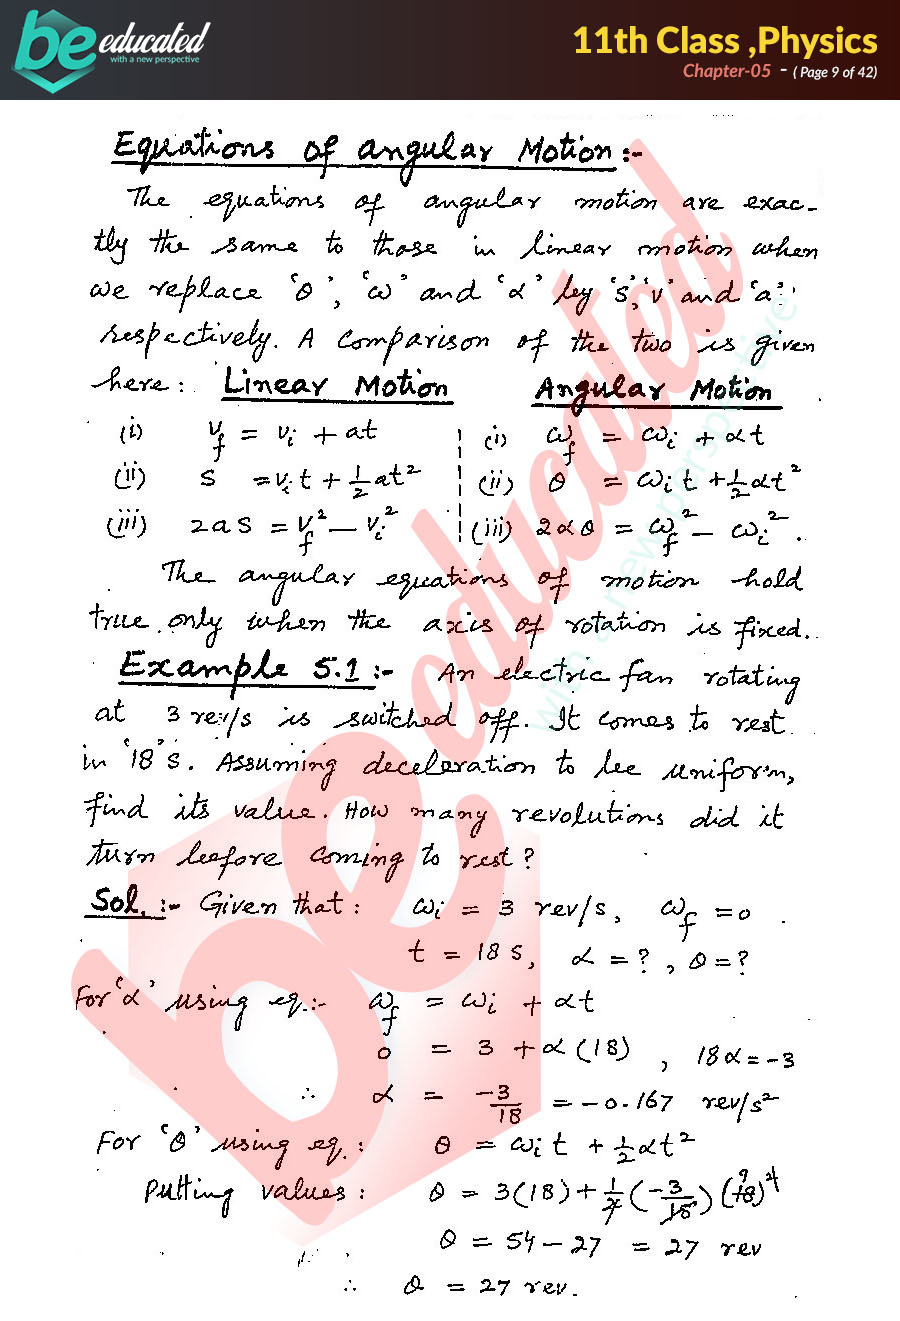 be educated
with a new perspective
11th Class ,Physics
Chapter-05 - ( Page 9 of 42)
Equations of angular Motion:-
The equations of angular motion are exac-
tly the same to those in linear motion when
we replace 'θ', 'ω' and 'α' by 'S', 'v' and 'a'
respectively. A comparison of the two is given
here: Linear Motion Angular Motion
(i) v_f = v_i + at (i) ω_f = ω_i + αt
(ii) S = v_i t + 1/2 at² (ii) θ = ω_i t + 1/2 αt²
(iii) 2aS = v_f² – v_i² (iii) 2αθ = ω_f² – ω_i².
The angular equations of motion hold
true only when the axis of rotation is fixed.
Example 5.1:- An electric fan rotating
at 3 rev/s is switched off. It comes to rest
in '18' s. Assuming deceleration to be uniform,
find its value. How many revolutions did it
turn before coming to rest?
Sol.:- Given that: ω_i = 3 rev/s, ω_f = 0
t = 18 s, α = ?, θ = ?
For 'α' using eq.:- ω_f = ω_i + αt
0 = 3 + α(18) , 18α = -3
∴ α = -3/18 = -0.167 rev/s²
For 'θ' using eq.: θ = ω_i t + 1/2 αt²
Putting values: θ = 3(18) + 1/2 (-3/18) (18)²
θ = 54 – 27 = 27 rev
∴ θ = 27 rev.
be educated
with a new perspective